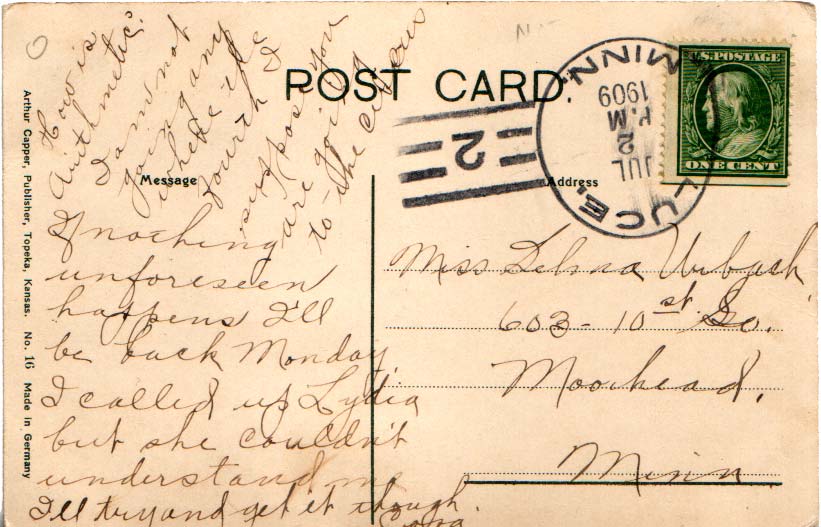 How is
Arithmetic?
I am not
going any
where the
fourth I
suppose you
are going
to the circus
POST CARD.
LUCE, MINN.
JUL
2
P.M
1909
2
U.S. POSTAGE
ONE CENT
Message
Address
If nothing
unforeseen
happens I'll
be back Monday
I called up Lydia
but she couldn't
understand me
I'll try and get it though.
Miss Selma
603 - 10th st So.
Moorhead,
Minn.
Arthur Capper, Publisher, Topeka, Kansas. No. 16 Made in Germany